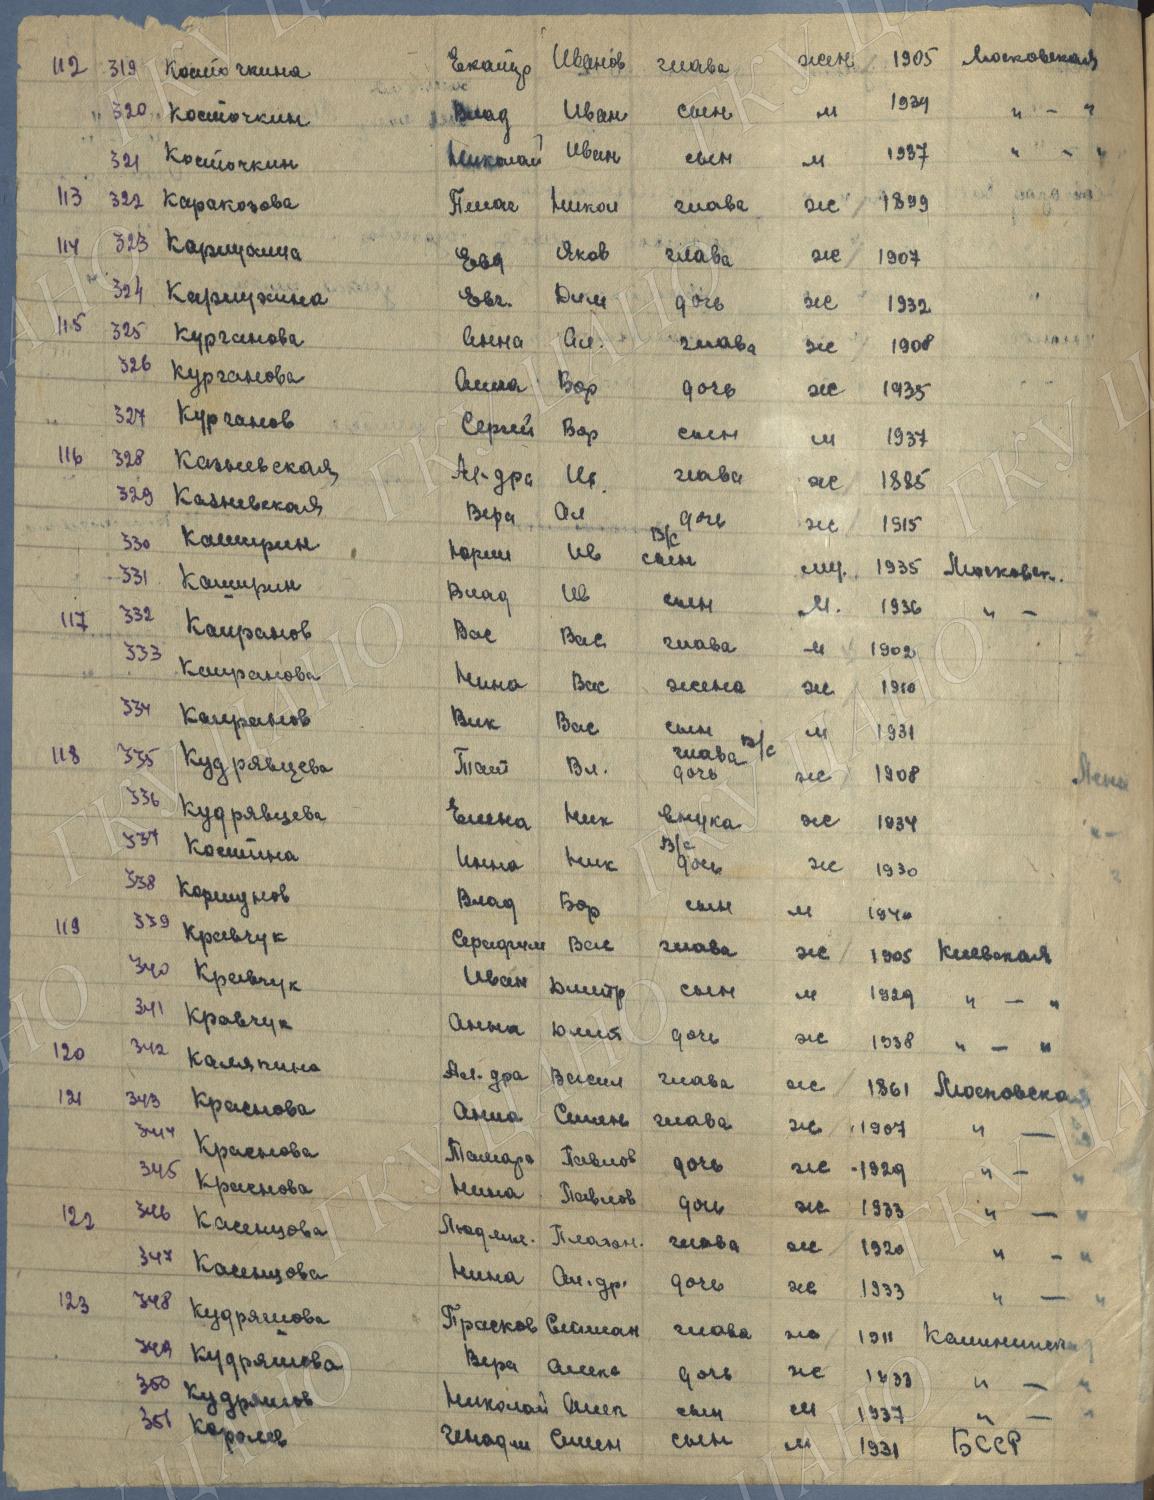 112 319 Косточкина Екатер Иванов глава жен 1905 Московская
320 Косточкин Влад Иван сын м 1934 " - "
321 Косточкин Николай Иван сын м 1937 " - "
113 322 Каракозова Пелаг Никол глава ж 1899
114 323 Евд Яков глава ж 1907
324 Каршухина Евг. Дим дочь ж 1932
115 325 Курганова Анна Ал. глава ж 1908
326 Курганова Алла Бор дочь ж 1935
327 Курганов Сергей Бор сын м 1937
116 328 Казневская Ал-дра Ив. глава ж 1885
329 Казневская Вера Ал дочь ж 1915
330 Каширин Юрий Ив в/с сын му. 1935 Московск.
331 Каширин Влад Ив сын м. 1936 " -
117 332 Капранов Вас Вас глава м 1902
333 Капранова Нина Вас жена ж 1910
334 Капранов Вик Вас сын м 1931
118 335 Кудрявцева Вл. глава в/с дочь ж 1908
336 Кудрявцева Елена Ник внука ж 1934
337 Костина Инна Ник в/с дочь ж 1930
338 Коршунов Влад Бор сын м 1940
119 339 Кравчук Серафим Вас глава ж 1905 Киевская
340 Кравчук Иван Дмитр сын м 1929 " - "
341 Кравчук Анна дочь ж 1938 " - "
120 342 Каляпина Ал-дра Васил глава ж 1861 Московская
121 343 Краснова Анна Семен глава ж 1907 " -
344 Краснова Тамара Павлов дочь ж 1929 " - "
345 Краснова Нина Павлов дочь ж 1933 " - "
122 346 Касенцова Людмил. Платон. глава ж 1920 " - "
347 Касенцова Нина Ал-др. дочь ж 1933 " - "
123 348 Кудряшова Прасков Селиван глава ж 1911 Калининград
349 Кудряшова Вера Алекс дочь ж 1933 " - "
350 Кудряшов Николай Алек сын м 1937 " - "
351 Королев Генадии Семен сын м 1931 БССР
ГКУ ЦАНО